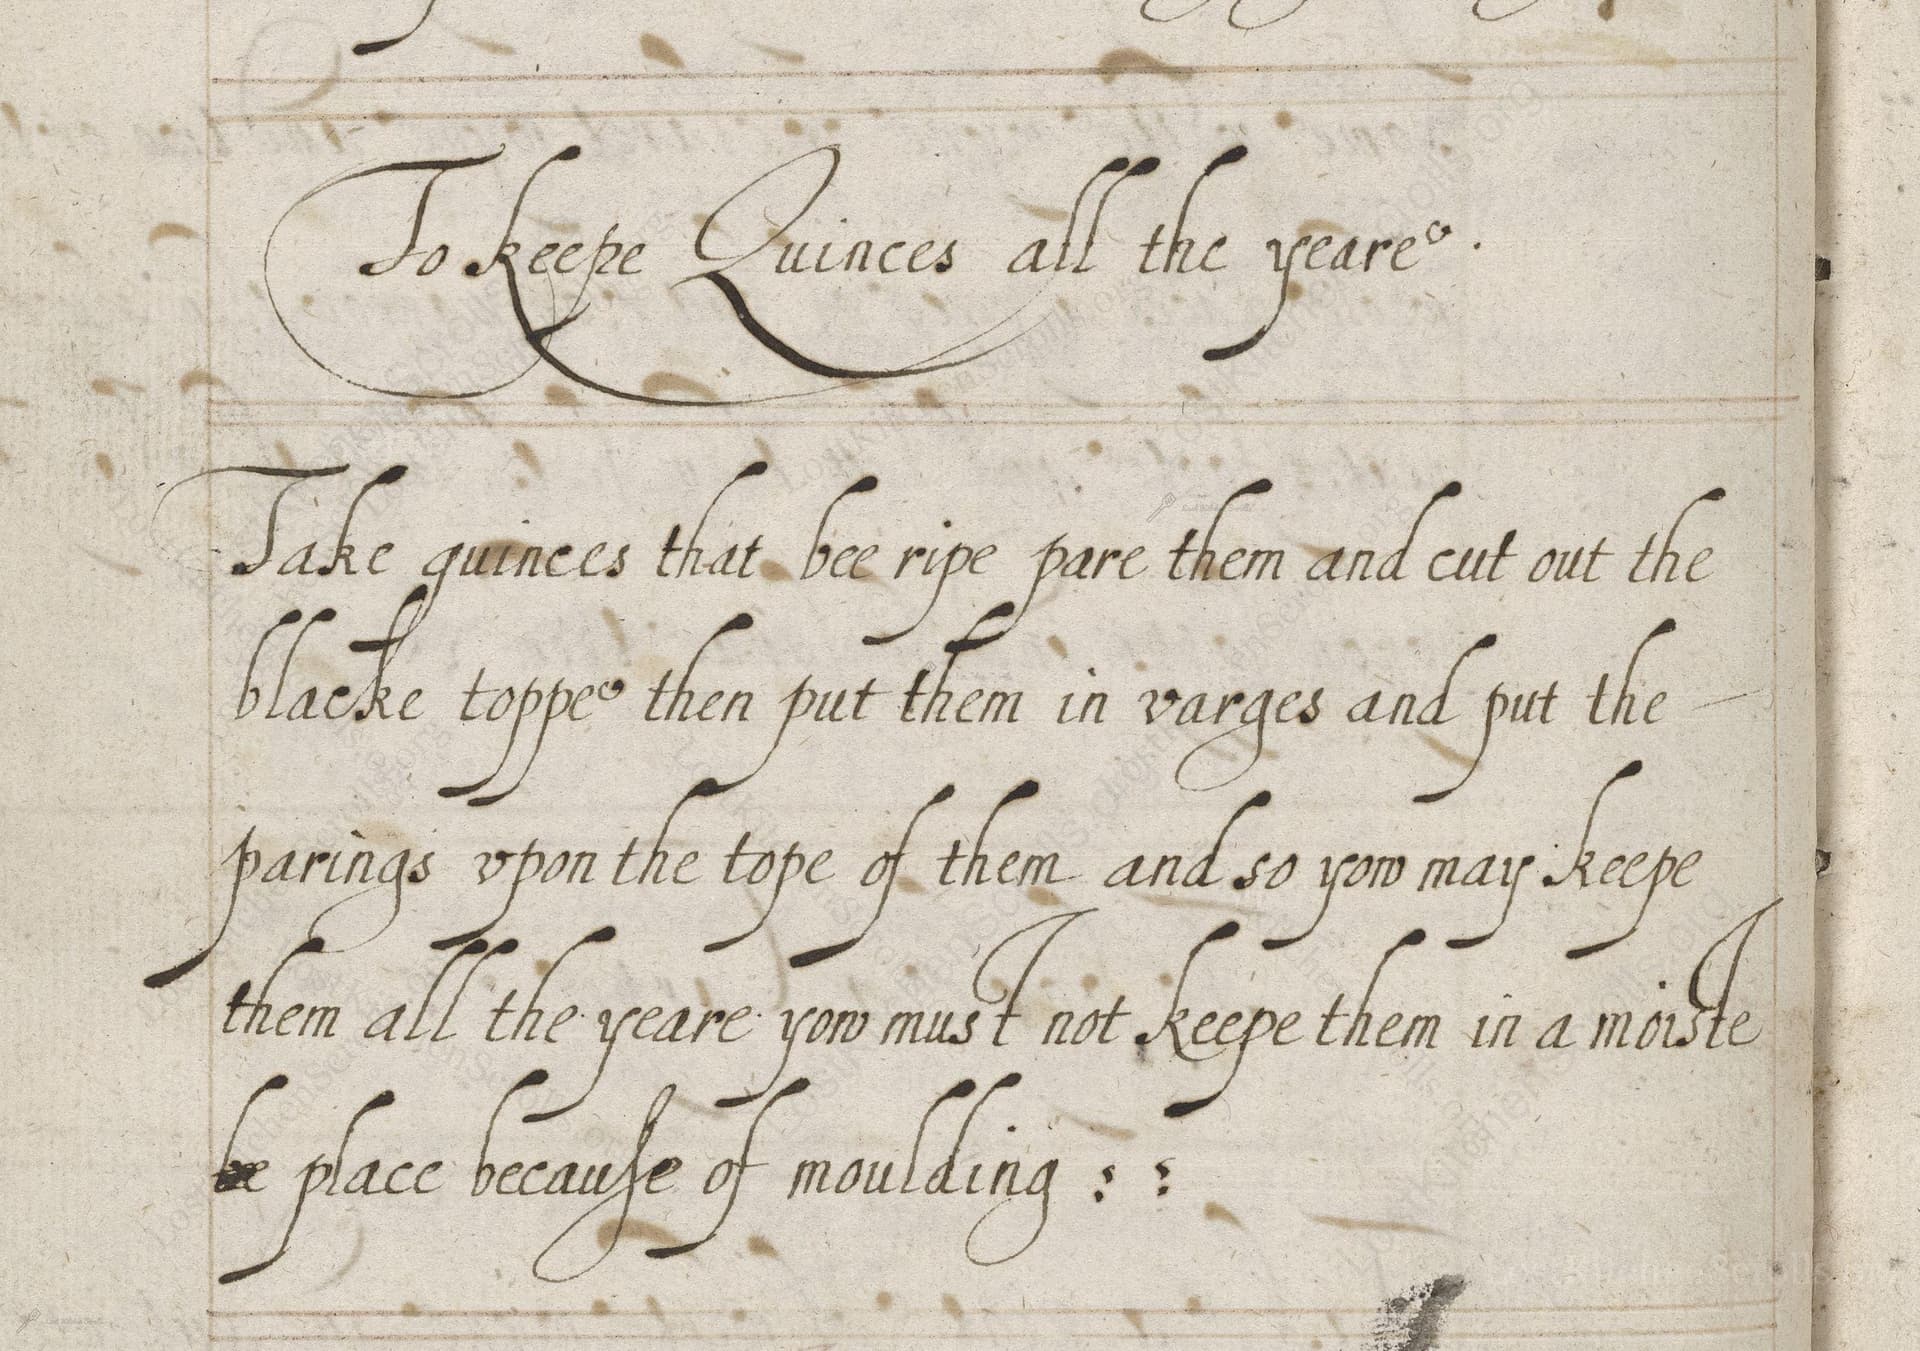 To keepe Quinces all the yeare.
Take quinces that bee ripe pare them and cut out the
blacke toppe then put them in varges and put the
parings vpon the tope of them and so yow may keepe
them all the yeare yow must not keepe them in a moiste
be place because of moulding : :